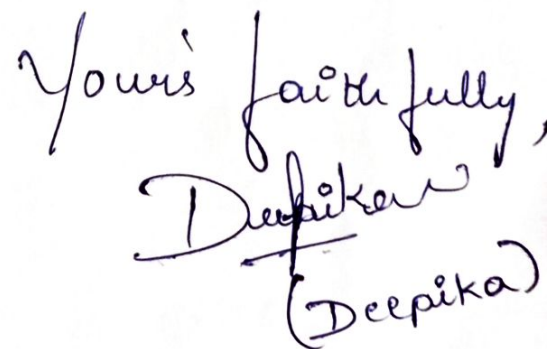 Your's faithfully,
Deepika
(Deepika)